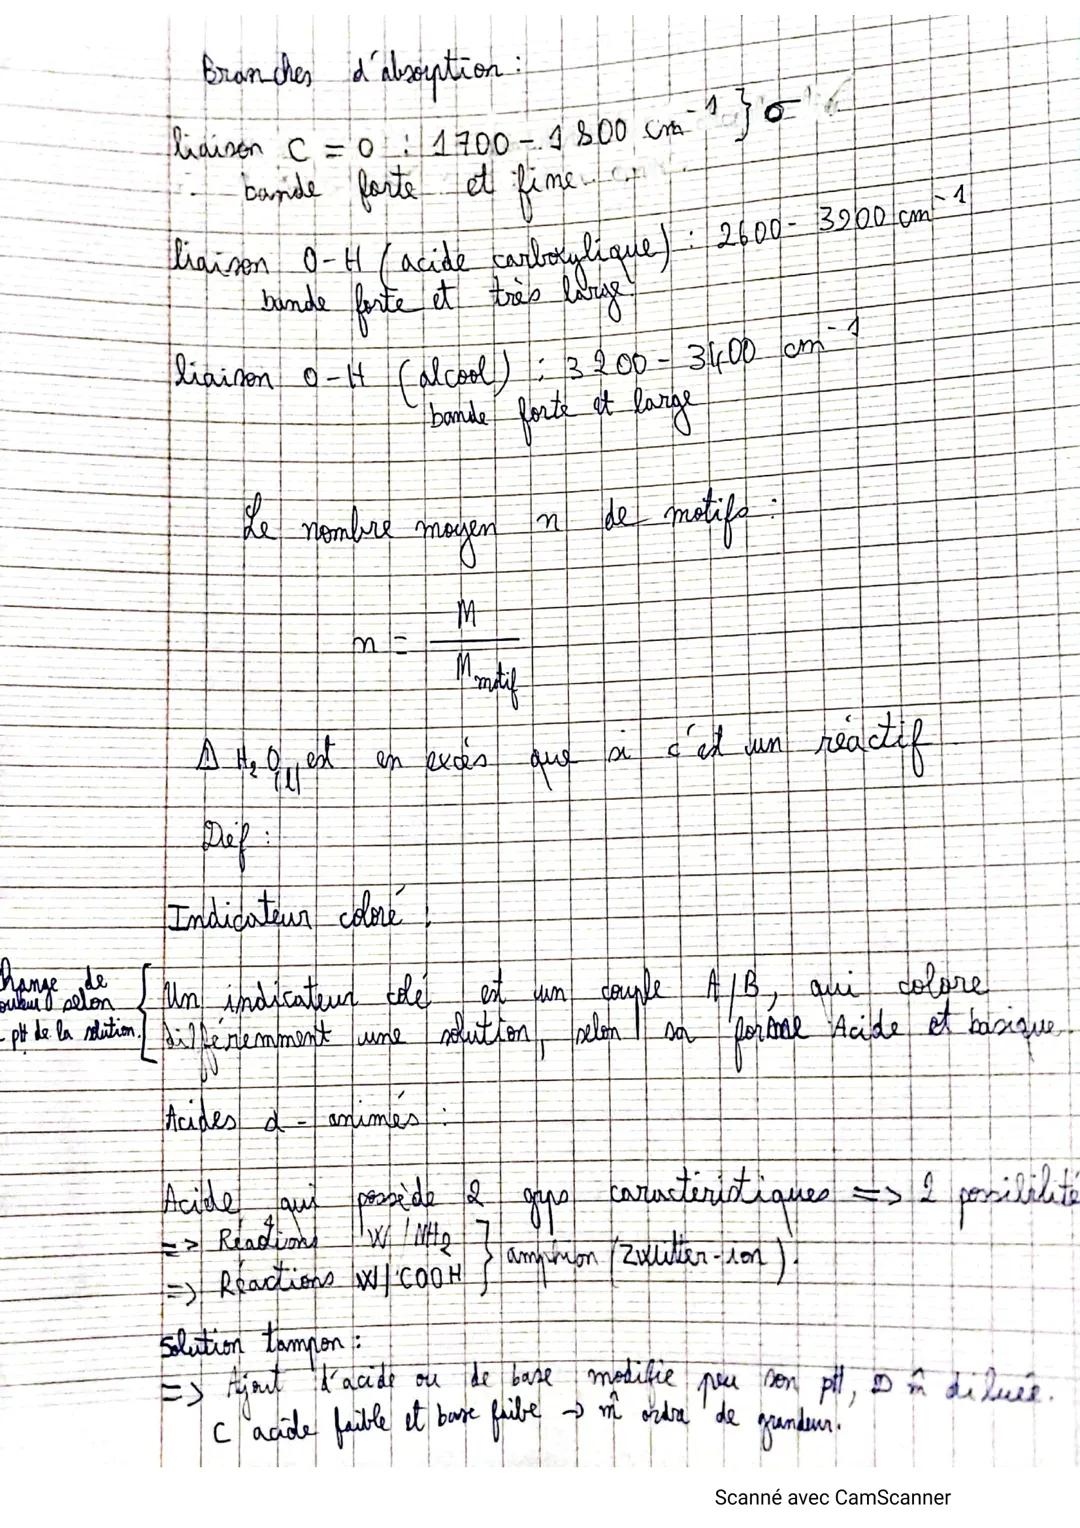 Branches d'absorption :
liaison C = O : 1700 - 1800 cm⁻¹ } σ
bande forte et fine
liaison O-H (acide carboxylique) : 2600 - 3200 cm⁻¹
bande forte et très large
liaison O-H (alcool) : 3200 - 3400 cm⁻¹
bande forte et large
Le nombre moyen n de motifs :
n = M / M motif
⚠ H₂O(l) est en excès que si c'est un réactif
Def :
Indicateur coloré :
Change de
couleur selon
pH de la solution.
Un indicateur colé est un couple A/B, qui colore
différemment une solution, selon sa forme Acide et basique
Acides α - animés :
Acide qui possède 2 grps caractéristiques => 2 possibilité
=> Réactions W/NH₂
=> Réactions W/COOH } amphion (Zwitter-ion).
Solution tampon :
=> Ajout d'acide ou de base modifie peu son pH, m̂ diluée.
C acide faible et base faibe → m̂ ordre de grandeur.
Scanné avec CamScanner